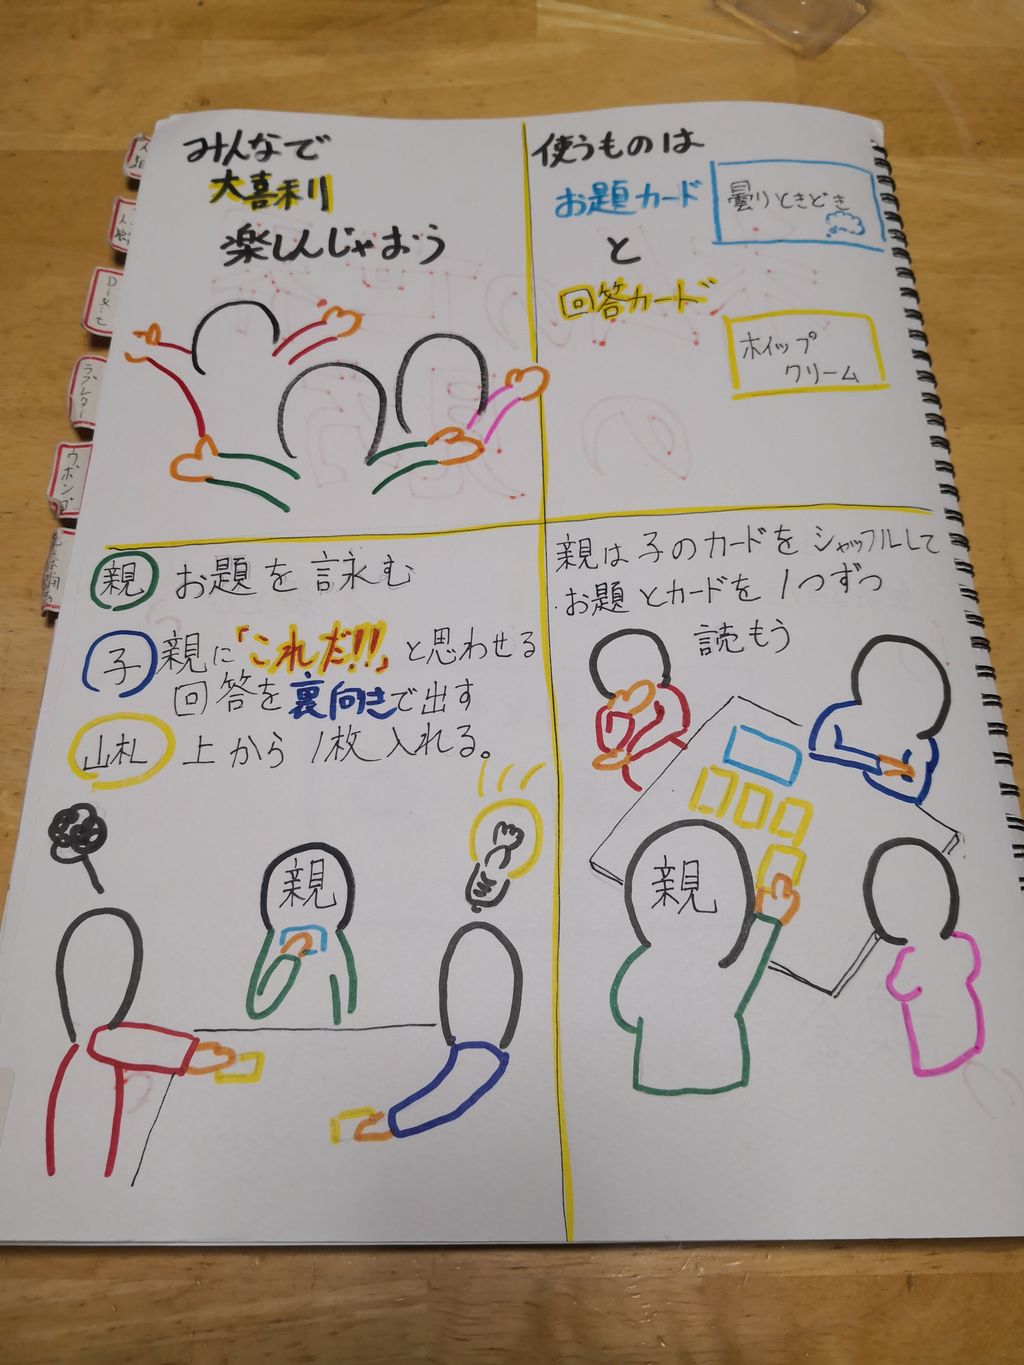 みんなで
大喜利
楽しんじゃおう
使うものは
お題カード
曇りときどき
と
回答カード
ホイップ
クリーム
親 お題を詠む
子 親に「これだ!!」と思わせる
回答を裏向きで出す
山札 上から1枚入れる。
親
親は子のカードをシャッフルして
お題とカードを1つずつ
読もう
親
ラブレター
ウボンゴ